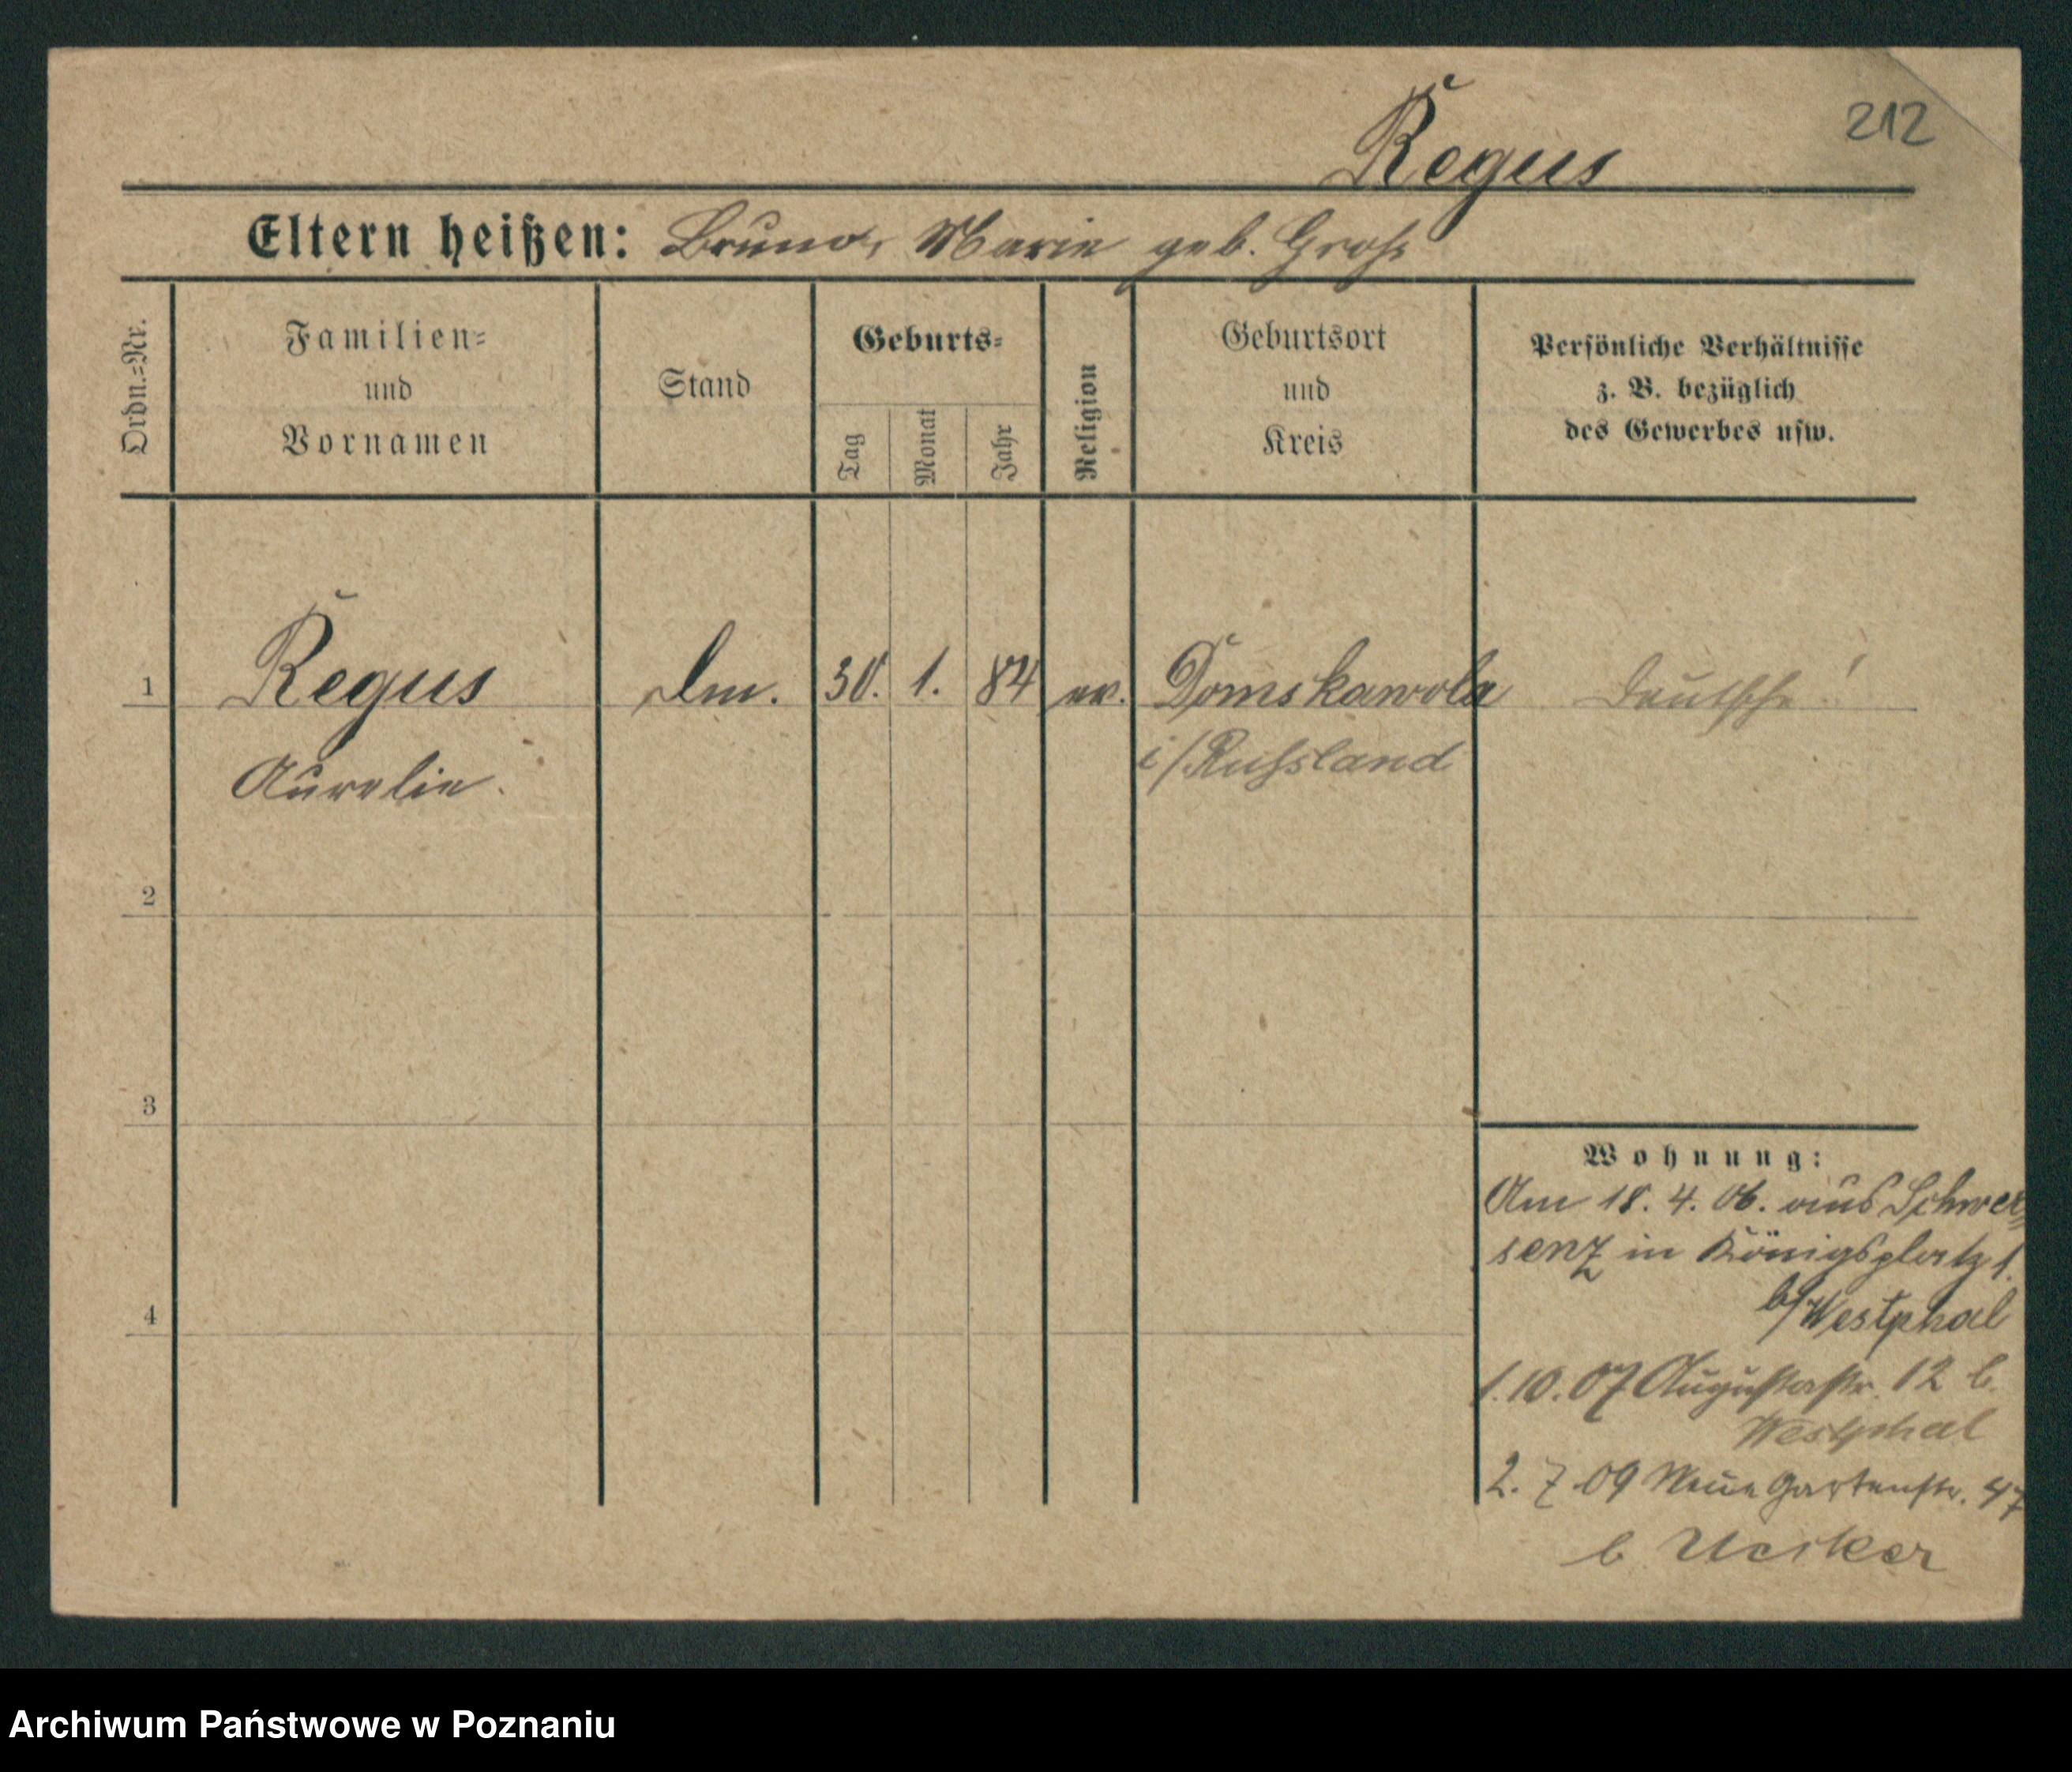 212
Regus
Eltern heißen: Bruno, Marie geb. Groß
Ordn.-Nr.
Familien-
und
Vornamen
Stand
Geburts-
Tag
Monat
Jahr
Religion
Geburtsort
und
Kreis
Persönliche Verhältnisse
z. B. bezüglich
des Gewerbes usw.
1 Regus 30. 1. 84 ev. Domskawola Deutsche!
Aurelie.
i/Russland
2
3
4
Wohnung:
Am 18. 4. 06. aus Schwer-
senz in Königsplatz 1.
b/Westphal
1.10.07 Augustastr. 12 b.
Westphal
2. 7. 09 Neue Gartenstr. 47
b.
Archiwum Państwowe w Poznaniu